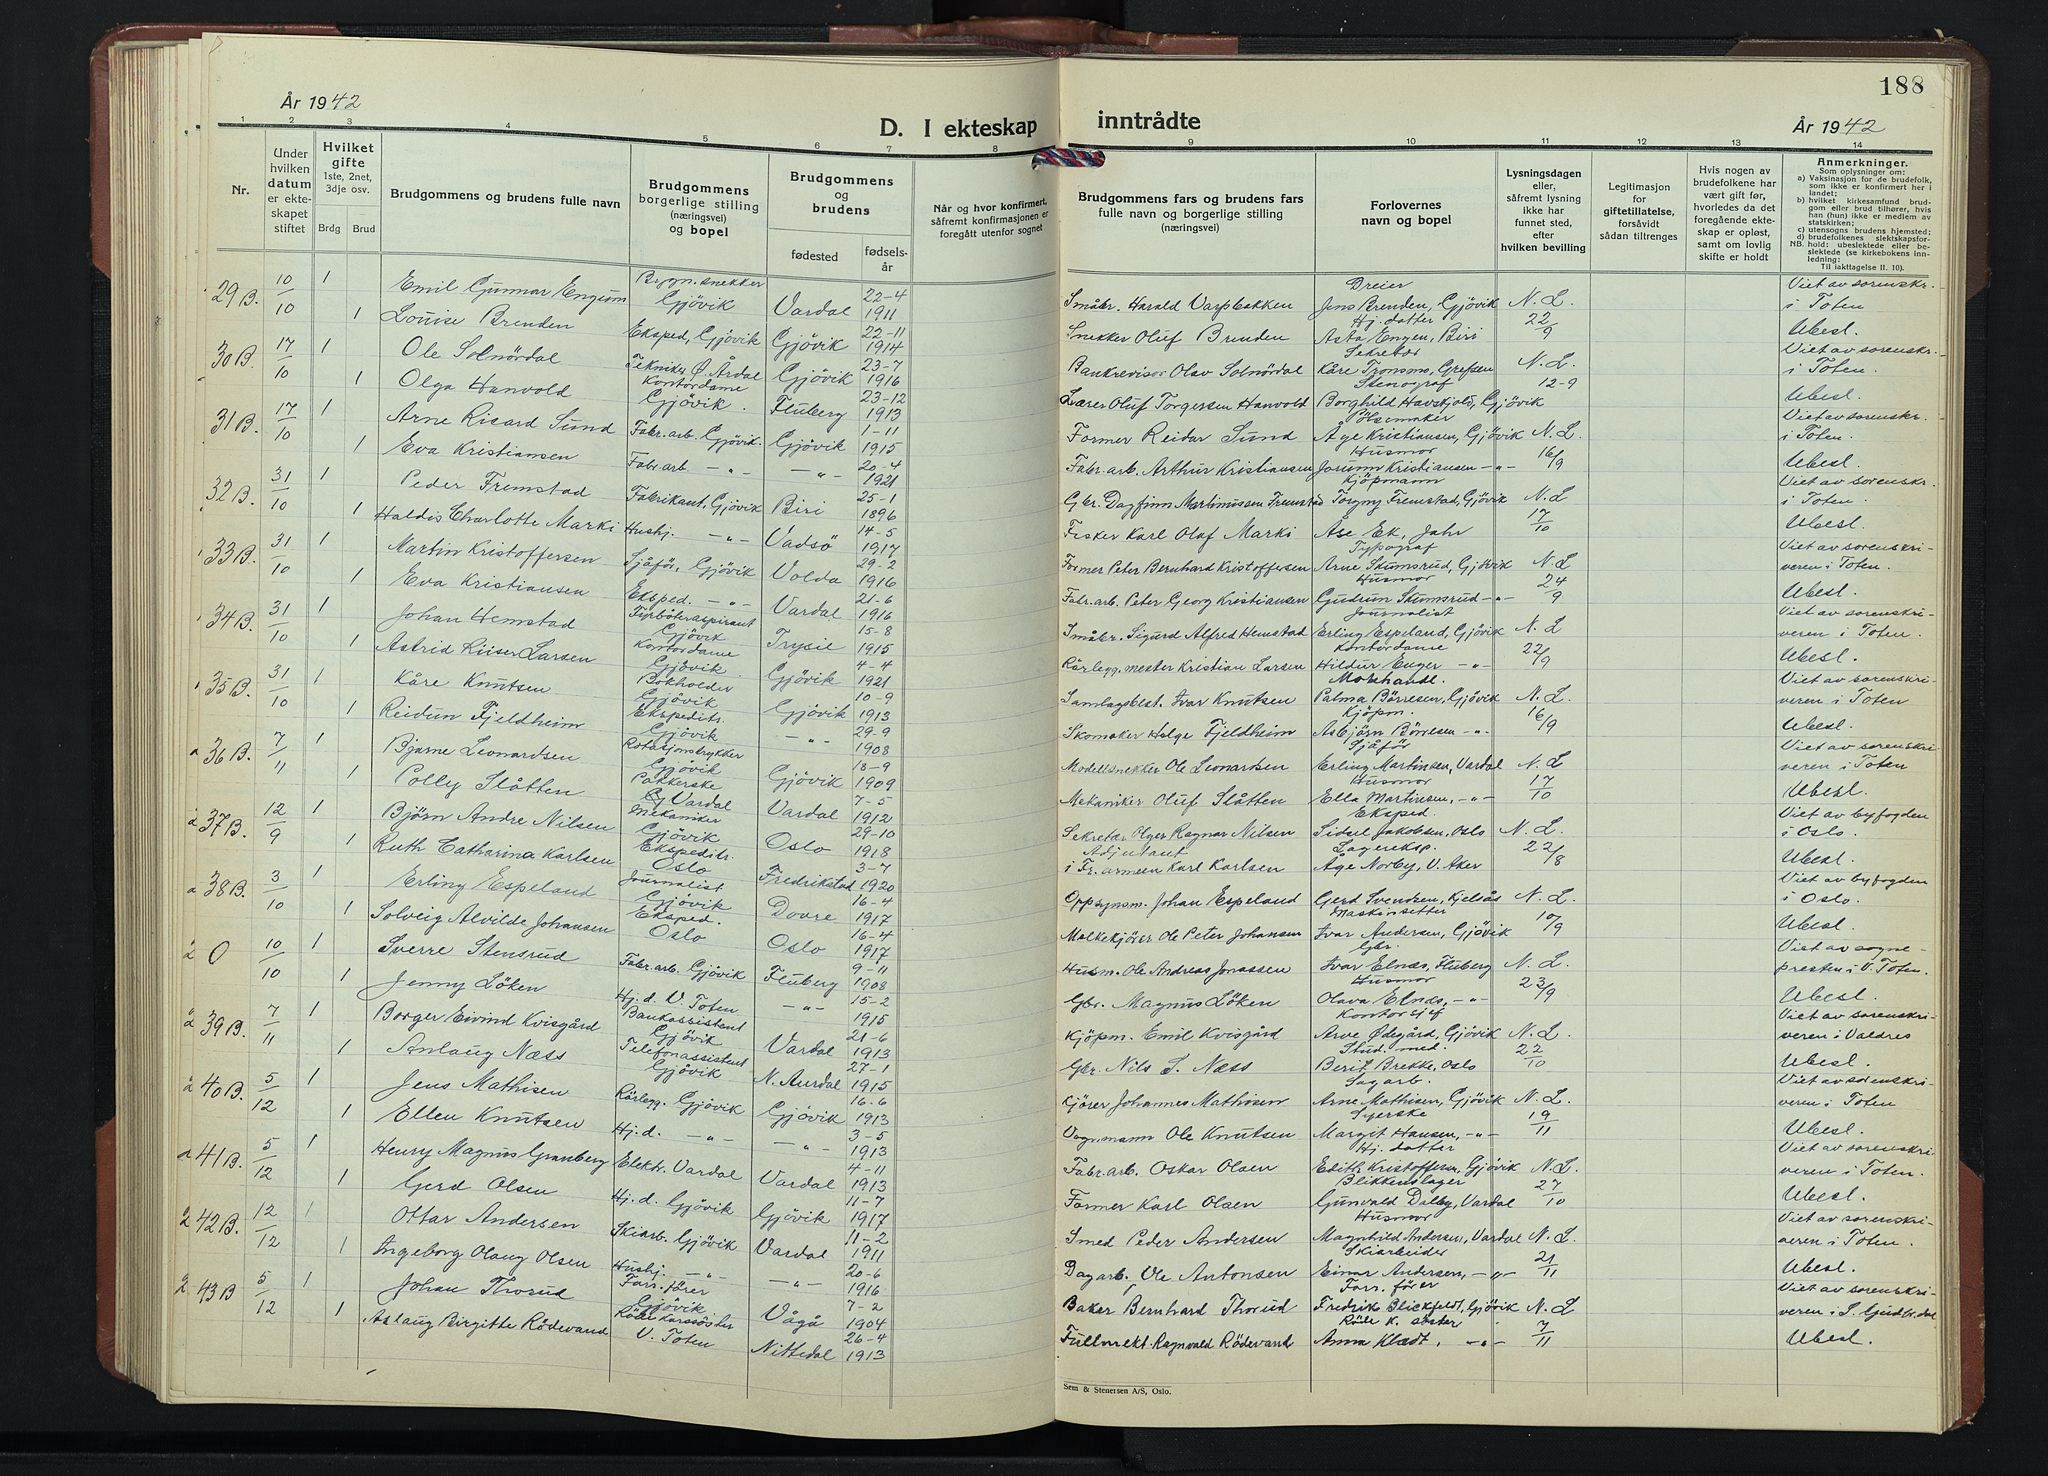 188
År 1942
D. I ekteskap inntrådte
År 1942
1 2 3 4 5 6 7 8 9 10 11 12 13 14
Nr.
Under hvilken datum er ekteskapet stiftet
Hvilket gifte 1ste, 2net, 3dje osv.
Brdg Brud
Brudgommens og brudens fulle navn
Brudgommens borgerlige stilling (næringsvei) og bopel
Brudgommens og brudens
fødested
fødselsår
Når og hvor konfirmert, såfremt konfirmasjonen er foregått utenfor sognet
Brudgommens fars og brudens fars fulle navn og borgerlige stilling (næringsvei)
Forlovernes navn og bopel
Lysningsdagen eller, såfremt lysning ikke har funnet sted, efter hvilken bevilling
Legitimasjon for giftetillatelse, forsåvidt sådan tiltrenges
Hvis nogen av brudefolkene har vært gift før, hvorledes da det foregående ekteskap er opløst, samt om lovlig skifte er holdt
Anmerkninger.
Som oplysninger om:
a) Vaksinasjon for de brudefolk, som ikke er konfirmert her i landet;
b) hvilket kirkesamfund brudgom eller brud tilhører, hvis han (hun) ikke er medlem av statskirken;
c) utensogns brudens hjemsted;
d) brudefolkenes slektskapsforhold: ubeslektede eller beslektede (se kirkebokens innledning:
NB. Til iakttagelse II. 10).
29B. 10/10 1 Emil Gunnar Engum Bygn.snekker Gjövik Vardal 22-4 1911 Småbr. Harald Varpbakken Dreier Jens Brenden, Gjövik N.L. 22/9 Viet av sorenskr. i Toten
1 Louise Brenden Eksped, Gjövik Gjövik 22-11 1914 Snekker Oluf Brenden Hj. datter Asta Engen, Biri Ubesl.
30B. 17/10 1 Ole Solnördal Tekniker Ø. Årdal Gjövik 23-7 1916 Bankrevisor Olav Solnördal Sekretær Kåre Tronsmo, Grefsen N.L. 12-9 Viet av sorenskr. i Toten.
1 Olga Hanvold Kontordame Gjövik. Fluberg 23-12 1913 Lærer Oluf Torgersen Hanvold Stenograf Borghild Havskjold, Gjövik Ubesl.
31B. 17/10 1 Arne Ricard Sund Fabr.arb. Gjövik. Gjövik 1-11 1915 Former Reidar Sund Pölsemaker Åge Kristiansen, Gjövik N.L. 16/9 Viet av sorenskr. i Toten.
1 Eva Kristiansen Fabr.arb -"- -"- 20-4 1921 Fabr.arb. Arthur Kristiansen Husmor Jorunn Kristiansen -"- Ubesl.
32B. 31/10 1 Peder Fremstad Fabrikant, Gjövik Biri 25-1 1896 Gbr. Dagfinn Martinussen Fremstad Kjöpmann Torgny Fremstad, Gjövik N.L 17/10 Viet av sorenskr. i Toten.
1 Haldis Charlotte Marki Hushj. -"- Vadsö 14-5 1917 Fisker Karl Olaf Marki Åse Ek, Jahr Ubesl.
33B. 31/10 1 Martin Kristoffersen Sjåfö, Gjövik Volda 29-2 1916 Former Peter Bernhard Kristoffersen Typograf Arne Skumsrud, Gjövik N.L 24/9 Viet av sorenskriveren i Toten.
1 Eva Kristiansen Eksped. -"- Vardal 21-6 1916 Fabr.arb. Peter Georg Kristiansen Husmor Gudrun Skumsrud -"- Ubesl.
34B. 31/10 1 Johan Hemstad Fyrböteraspirant Gjövik Trysil 15-8 1915 Småbr. Sigurd Alfred Hemstad Journalist Erling Espeland, Gjövik N.L 22/9 Viet av sorenskriveren i Toten.
1 Astrid Riiser Larsen Kontordame Gjövik Gjövik 4-4 1921 Rørlegg.mester Kristian Larsen Kontordame Hildur Enger -"- Ubesl.
35B. 31/10 1 Kåre Knutsen Bokholder Gjövik Gjövik 10-9 1913 Samlagsbest. Ivar Knutsen Morhandl. Palma Börresen, Gjövik N.L 16/9 Viet av sorenskriveren i Toten
1 Reidun Fjeldheim Ekspeditr. Gjövik -"- 29-9 1908 Skomaker Helge Fjeldheim Kjöpm. Asbjörn Börresen -"- Ubesl.
36B. 7/11 1 Bjarne Leonardsen Rotasjonstrykker Gjövik Gjövik 18-9 1909 Modellsnekker Ole Leonartsen Sjåför Erling Martinsen, Vardal N.L 17/10 Viet av sorenskriveren i Toten
1 Polly Slåtten Pakkerske Vardal Vardal 7-5 1912 Mekaniker Oluf Slåtten Husmor Ella Martinsen, -"- Ubesl.
37B. 12/9 1 Björn Andre Nilsen Mekaniker Gjövik Oslo 29-10 1918 Sekretær Olger Ragnar Nilsen Eksped. Sidsel Jakobsen, Oslo N.L. 22/8 Viet av byfogden i Oslo.
1 Ruth Catharina Karlsen Ekspeditr. Oslo Fredrikstad 3-7 1920 Adjutant i Fr.armeen Karl Karlsen Lagereksp. Åge Norby, V. Aker Ubesl.
38B. 3/10 1 Erling Espeland Journalist Gjövik Dovre 16-4 1917 Oppsynsm. Johan Espeland Gerd Svendsen, Kjelsås N.L. 10/9 Viet av byfogden i Oslo.
1 Solveig Alvilde Johansen Eksped. Oslo Oslo 16-4 1917 Melkekjörer Ole Peter Johansen Maskinsetter Ivar Andersen, Gjövik Ubesl.
0 10/10 1 Sverre Stensrud Fabr.arb. Gjövik Fluberg 9-11 1908 Husm. Ole Andreas Jonassen Gbr. Ivar Elnæs, Fluberg N.L. 23/9 Viet av sognepresten i V. Toten.
1 Jenny Löken Hj.d. V. Toten -"- 15-2 1915 Gbr. Magnus Löken Husmor Olava Elnæs, -"- Ubesl.
39B. 7/11 1 Borger Eivind Kvisgård Bankassistent Gjövik Vardal 21-6 1913 Kjöpm. Emil Kvisgård Kontorsjef Arne Ødegård, Gjövik N.L. 22/10 Viet av sorenskriveren i Valdres
1 Anlaug Næss Telefonassistent Gjövik N. Aurdal 27-1 1915 Gbr. Nils S. Næss Stud. med. Berit Brekke, Oslo Ubesl.
40B. 5/12 1 Jens Mathisen Rörlegg. Gjövik Gjövik 16-6 1913 Kjörer Johannes Mathisen Sagarb. Arne Mathisen, Gjövik N.L. 19/11 Viet av sorenskriveren i Toten
1 Ellen Knutsen Hj.d. -"- -"- 3-5 1913 Vognmann Ole Knutsen Syerske Margit Hansen, -"- Ubesl.
41B. 5/12 1 Henry Magnus Granberg Elektr. Vardal Vardal 4-11 1913 Fabr.arb. Oskar Olsen Hj. datter Edith Kristoffersen, Gjövik N.L. 27/10 Viet av sorenskriveren i Toten.
1 Gerd Olsen Hj.d. Gjövik Gjövik 11-7 1917 Former Karl Olsen Blikkenslager Gunvald Dalby, Vardal Ubesl.
42B. 12/12 1 Ottar Andersen Skiarb. Gjövik Vardal 11-2 1911 Smed Peder Andersen Husmor Magnhild Andersen, Vardal N.L. 21/11 Viet av sorenskriveren i Toten.
1 Ingeborg Olaug Olsen Hushj. -"- -"- 20-6 1916 Dagarb. Ole Antonsen Skiarbeider Einar Andersen, -"- Ubesl.
43B 5/12 1 Johan Thorud Forr.förer Gjövik Vågå 7-2 1904 Baker Bernhard Thorud Forr. förer Fredrik Blickfeldt, Gjövik N.L 7/11 Viet av sorenskriveren i S. Gudbr.dal
1 Aslaug Birgitte Rödevand Röde Korssöster V. Toten Nittedal 26-4 1913 Fullmekt. Ragnvald Rödevand Röde K. söster Anna Klædt, -"- Ubesl.
Sem & Stenersen A/S, Oslo.